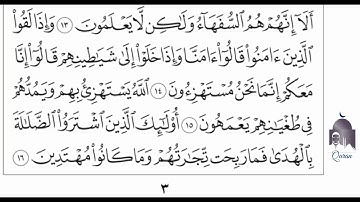 أَلَآ إِنَّهُمْ هُمُ ٱلسُّفَهَآءُ وَلَٰكِن لَّا يَعْلَمُونَ ١٣ وَإِذَا لَقُوا۟
ٱلَّذِينَ ءَامَنُوا۟ قَالُوٓا۟ ءَامَنَّا وَإِذَا خَلَوْا۟ إِلَىٰ شَيَٰطِينِهِمْ قَالُوٓا۟ إِنَّا
مَعَكُمْ إِنَّمَا نَحْنُ مُسْتَهْزِءُونَ ١٤ ٱللَّهُ يَسْتَهْزِئُ بِهِمْ وَيَمُدُّهُمْ
فِى طُغْيَٰنِهِمْ يَعْمَهُونَ ١٥ أُو۟لَٰٓئِكَ ٱلَّذِينَ ٱشْتَرَوُا۟ ٱلضَّلَٰلَةَ
بِٱلْهُدَىٰ فَمَا رَبِحَت تِّجَٰرَتُهُمْ وَمَا كَانُوا۟ مُهْتَدِينَ ١٦
٣
Quran